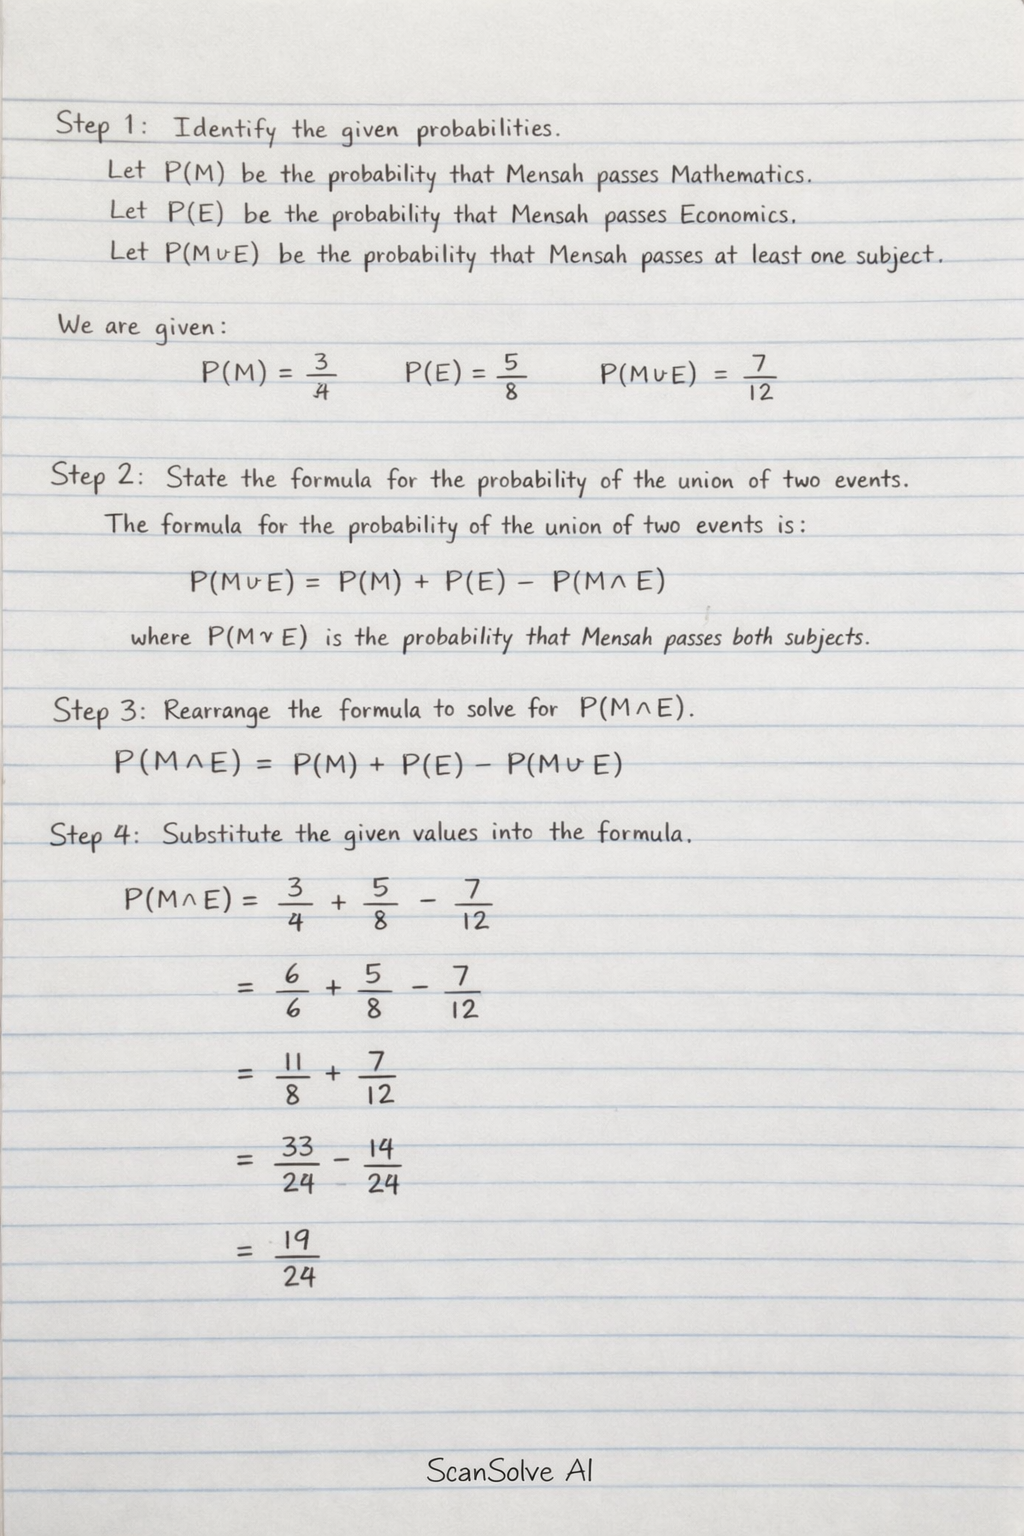 Step 1: Identify the given probabilities.
Let P(M) be the probability that Mensah passes Mathematics.
Let P(E) be the probability that Mensah passes Economics.
Let P(M∪E) be the probability that Mensah passes at least one subject.
We are given:
P(M) = 3/4 P(E) = 5/8 P(M∪E) = 7/12
Step 2: State the formula for the probability of the union of two events.
The formula for the probability of the union of two events is:
P(M∪E) = P(M) + P(E) − P(M∧E)
where P(M∨E) is the probability that Mensah passes both subjects.
Step 3: Rearrange the formula to solve for P(M∧E).
P(M∧E) = P(M) + P(E) − P(M∪E)
Step 4: Substitute the given values into the formula.
P(M∧E) = 3/4 + 5/8 − 7/12
= 6/6 + 5/8 − 7/12
= 11/8 + 7/12
= 33/24 − 14/24
= 19/24
ScanSolve AI